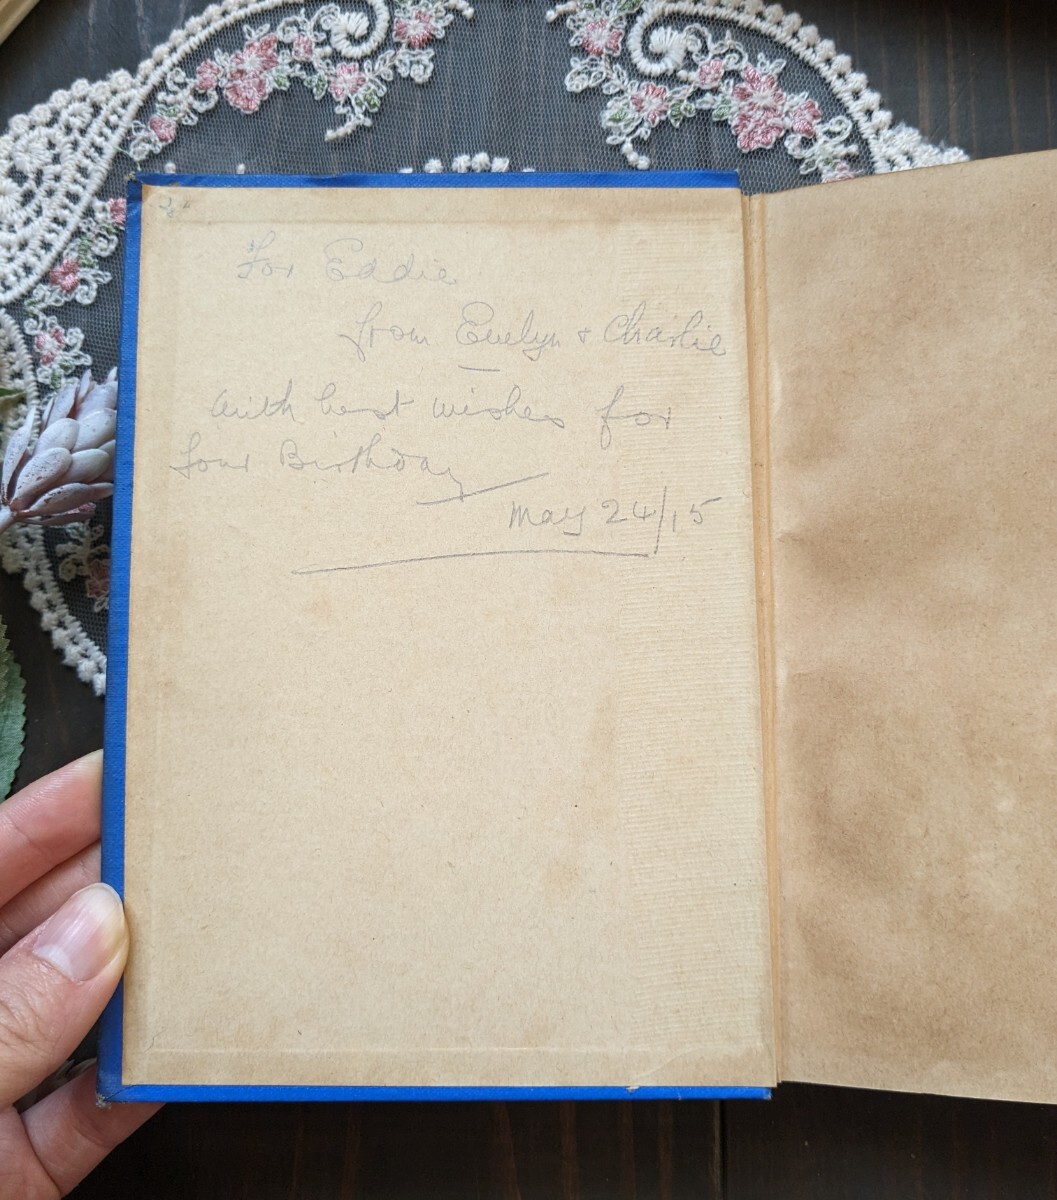 For Eddie
from Evelyn & Charlie
With best wishes for
your Birthday
May 24/15